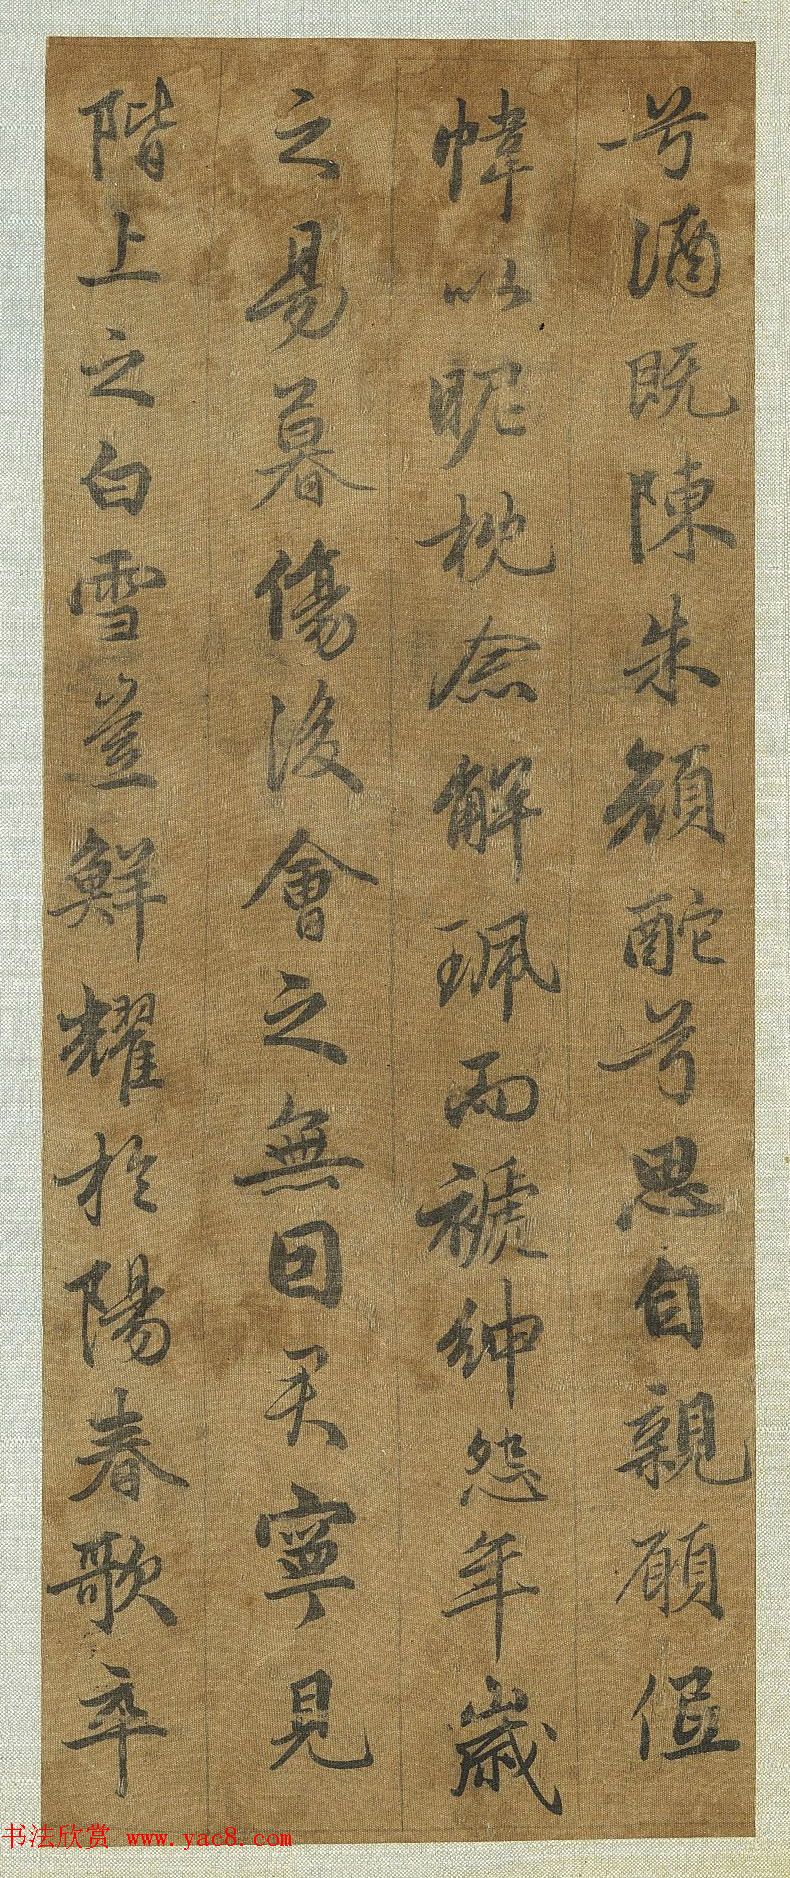 兮酒既陳朱顏酡兮思自親願低
幃以昵枕念解珮而褫紳怨年歲
之易暮傷後會之無因君寧見
階上之白雪豈鮮耀於陽春歌卒
书法欣赏 www.yac8.com